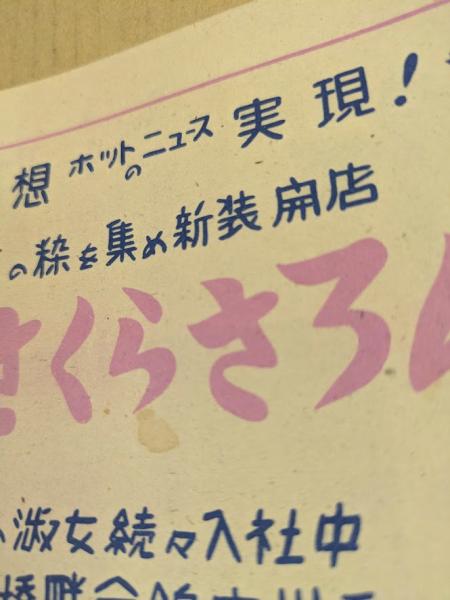 想 ホットのニュース 実現!
の粋を集め新装開店
さくらさろん
淑女続々入社中